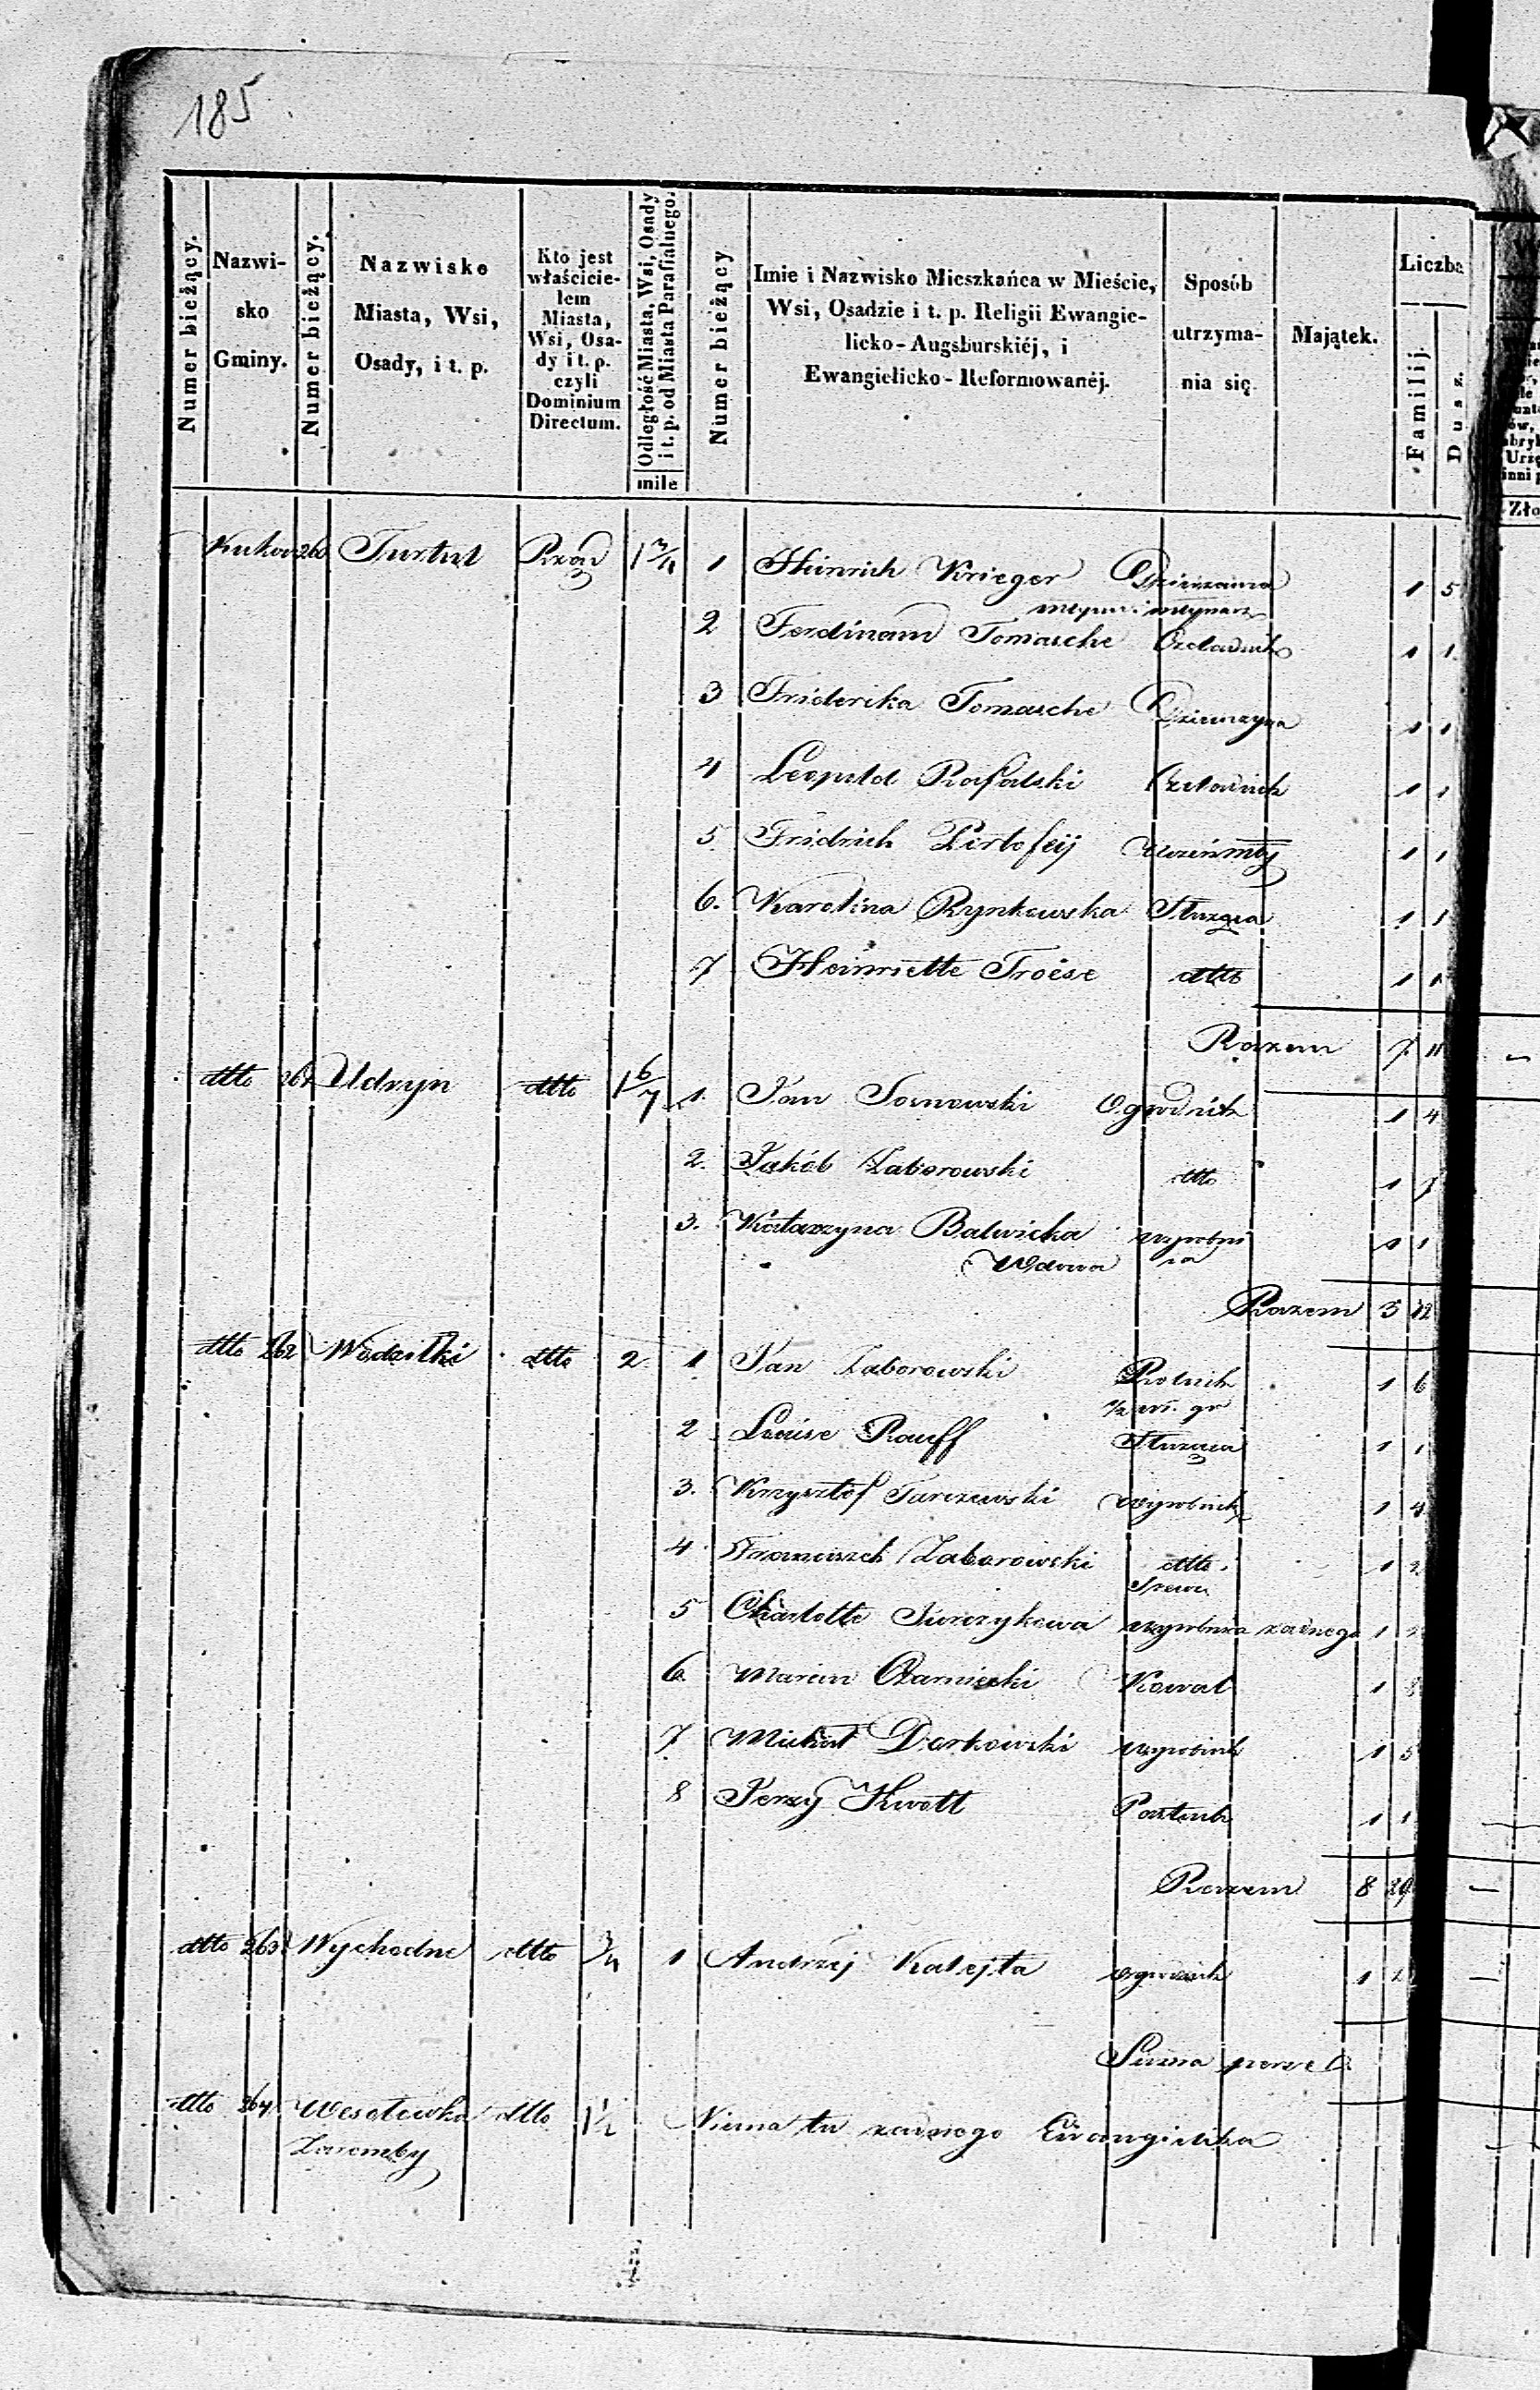 185
Numer bieżący.
Nazwi-
sko
Gminy.
Numer bieżący.
Nazwisko
Miasta, Wsi,
Osady, i t. p.
Kto jest
właścicie-
lem
Miasta,
Wsi, Osa-
dy i t. p.
czyli
Dominium
Directum.
Odległość Miasta, Wsi, Osady
i t. p. od Miasta Parafialnego.
mile
Numer bieżący
Imie i Nazwisko Mieszkańca w Mieście,
Wsi, Osadzie i t. p. Religii Ewangie-
licko-Augsburskiéj, i
Ewangielicko-Reformowanéj.
Sposób
utrzyma-
nia się.
Majątek.
Liczba
Familij.
Dusz.
260 Turtul Rząd 1 3/4 1 Heinrich Krieger Dzierzawca 1 5
młynu i młynarz
2 Ferdinand Tomasche Czeladnik 1 1
3 Friderika Tomasche 1 1
4 Leopold Rafalski Czeladnik 1 1
5 Fridrich 1 1
6. Karolina Rynkowska Służąca 1 1
7 Heinriette Troese dtto 1 1
Razem 7 11
dtto 261 Udryn dtto 1 6/7 1. Jan Sosnowski Ogrodnik 1 4
2. Jakób Zaborowski dtto 1 7
3. Katarzyna Balwicka wyrobni 1 1
Wdowa ca
Razem 3 12
dtto 262 Wodziłki dtto 2 1 Jan Zaborowski Rolnik 1 6
1/2 wł. gr
2 Louise Rauff Służąca 1 1
3. Krzysztof Tarczewski wyrobnik 1 4
4 Franciszek Zaborowski dtto 1 2
5 Charlotte Jurczykowa wyrobnica żadnego 1
6 Marcin Czarniecki Kowal 1
7 Michał Darkowski wyrobnik 1 5
8 Jerzy Kwott Pastuch 1 1
Razem 8 29
dtto 263 Wychodne dtto 3/4 1 Andrzej Kalejta 1
Suma per se
dtto 264 Wesołowka dtto 1 1/2 Niema tu żadnego Ewangielika
Zaremby